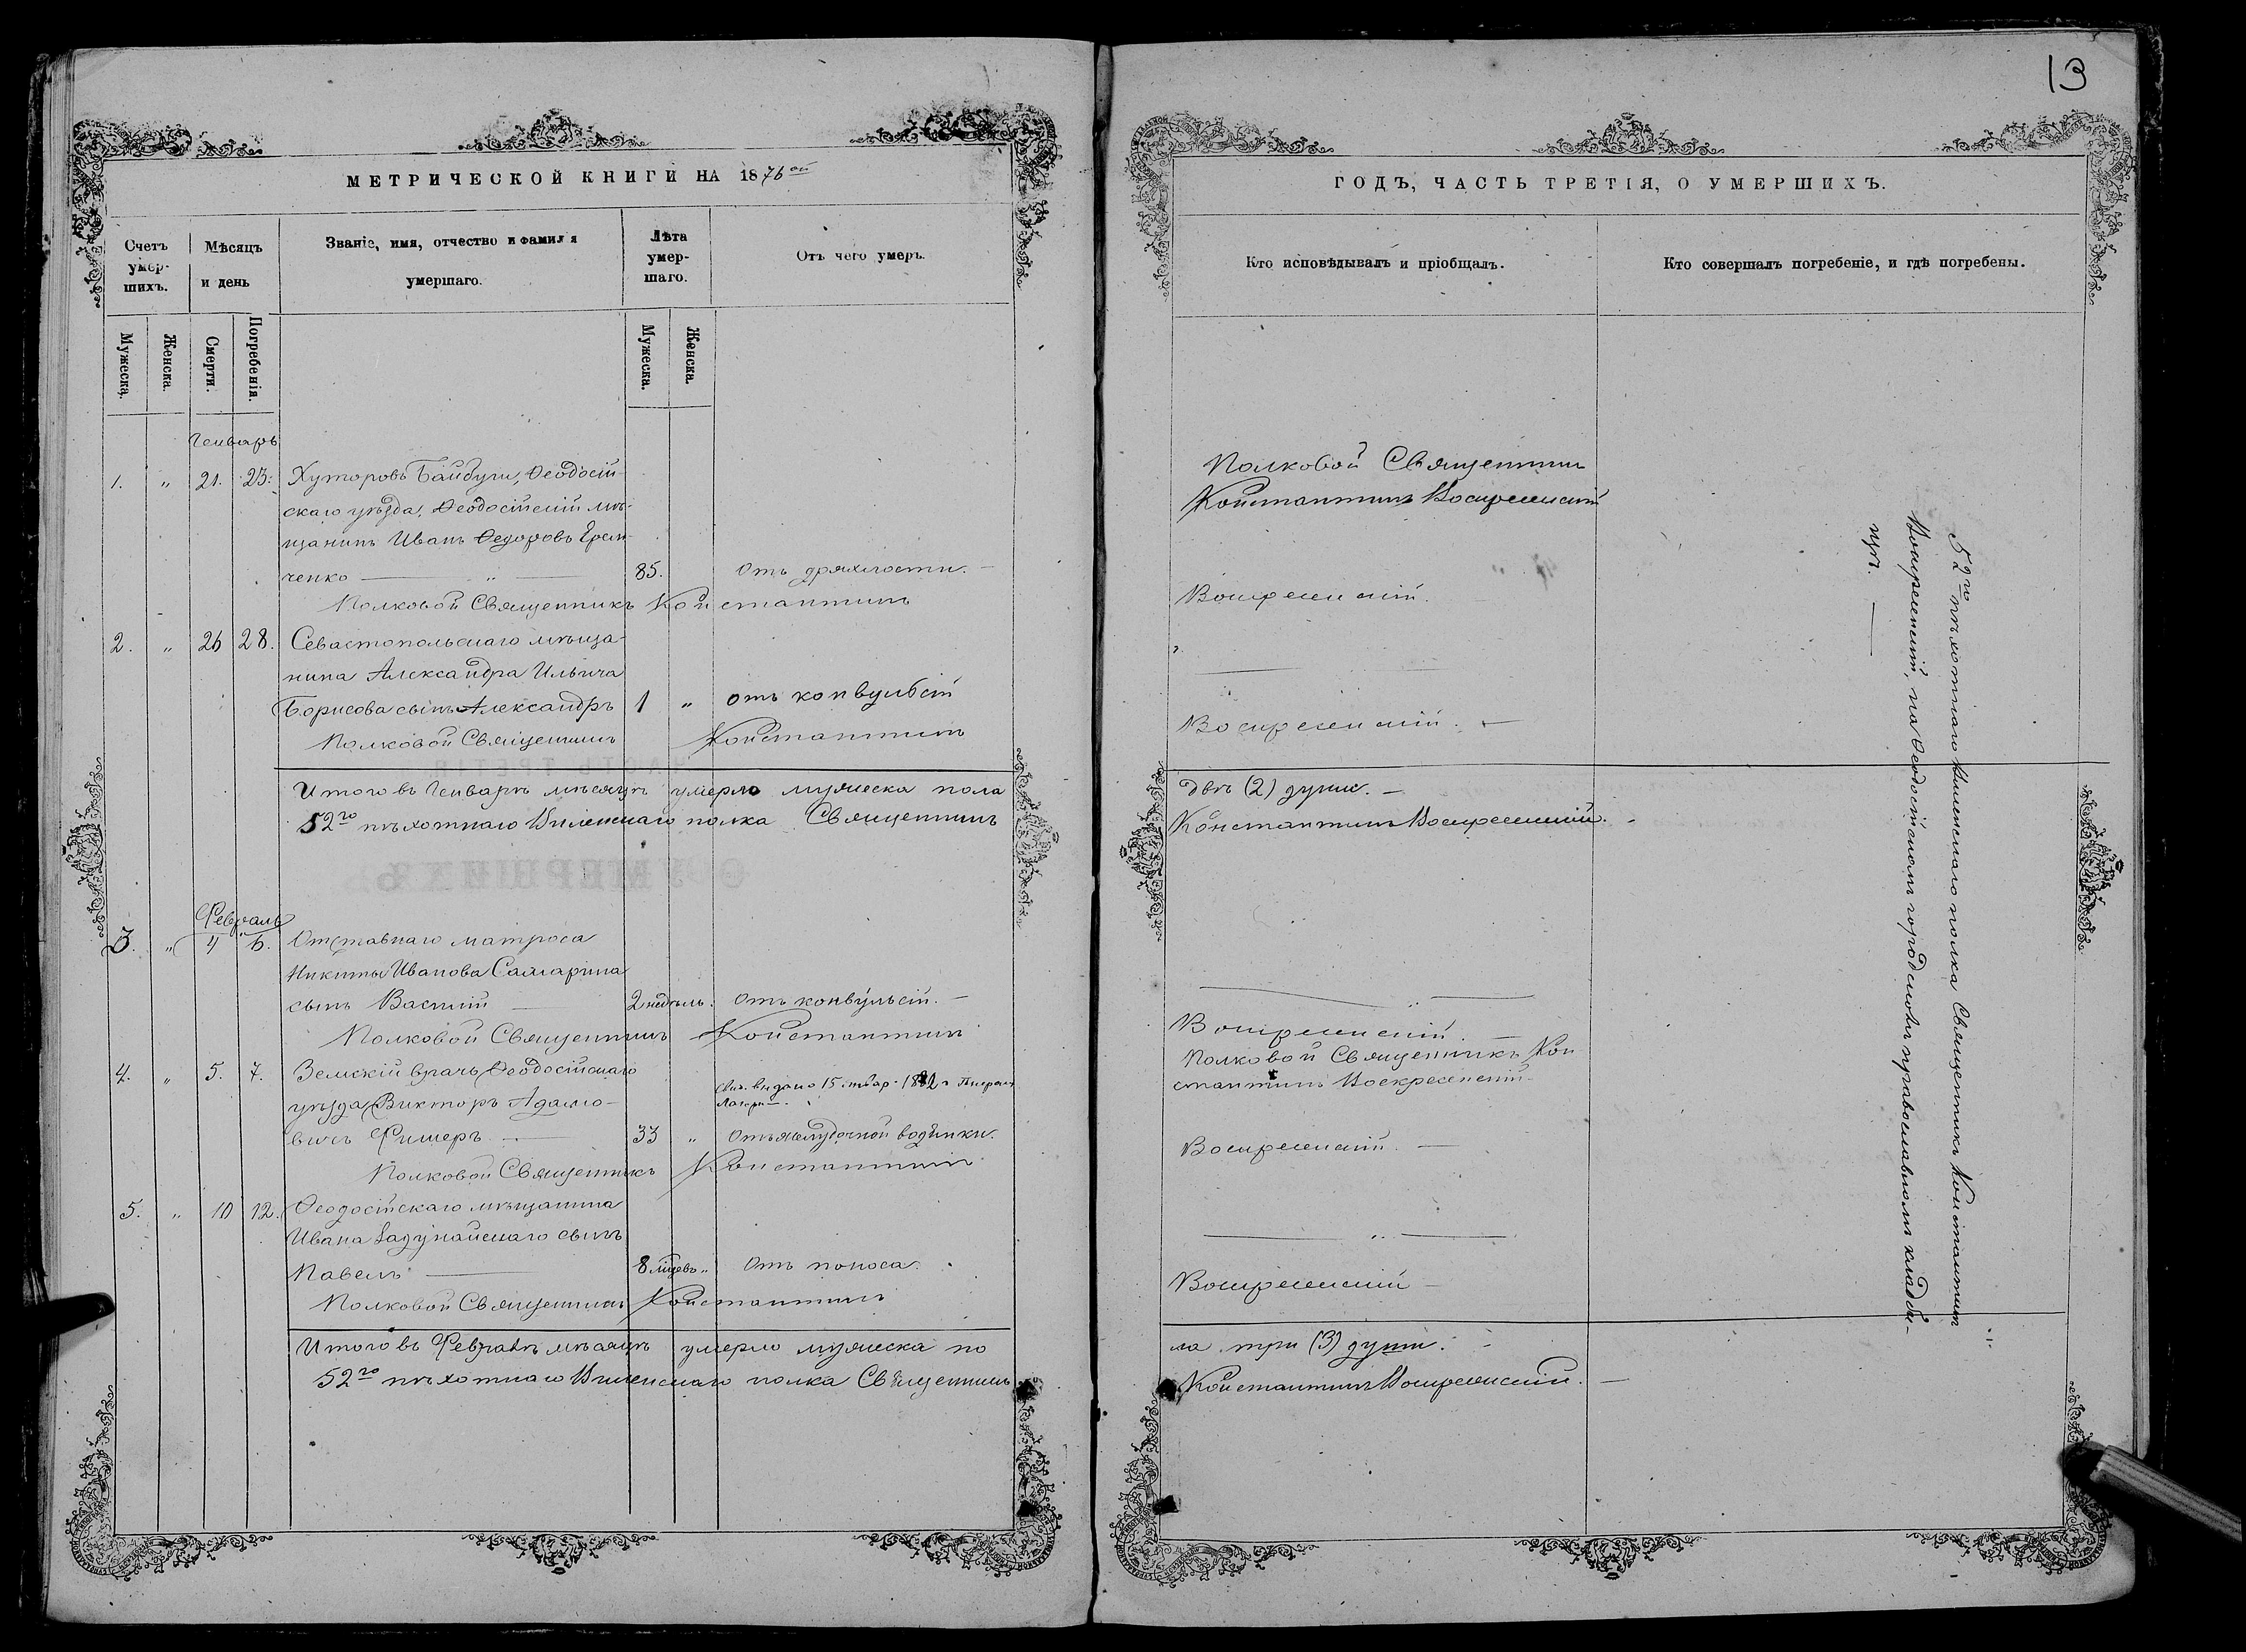 13
МЕТРИЧЕСКОЙ КНИГИ НА 1876ой
Счетъ умер-шихъ.
Мѣсяцъ и день
Званіе, имя, отчество и фамилія умершаго.
Лѣта умер-шаго.
Отъ чего умеръ.
Мужеска.
Женска.
Смерти.
Погребенія.
Мужеска.
Женска.
Генварь
1. " 21. 23. Хуторовъ Байбуги, Ѳеодосій-
скаго уѣзда, Ѳеодосійскій мѣ-
щанинъ Иванъ Ѳедоровъ Ерем-
ченко — " — 85. Отъ дряхлости. —
Полковой Священникъ Константинъ
2. " 26 28. Севастопольскаго мѣща-
нина Александра Ильича
Борисова сынъ Александръ 1 " отъ конвулсій
Полковой Священникъ Константинъ
Итого въ Генварѣ мѣсяцѣ умерло мужеска пола
52го пѣхотнаго Виленскаго полка Священникъ
Февраль
3. " 4 6. Отставнаго матроса
Никиты Иванова Самарина
сынъ Василій — 2 недѣль. Отъ конвульсій. —
Полковой Священникъ Константинъ
4. " 5. 7. Земскій врачъ Ѳеодосійскаго
уѣзда Викторъ Адамо-
вичъ Фишеръ — 33 " Отъ желудочной водянки.
Полковой Священникъ Константинъ
5. " 10 12. Ѳеодосійскаго мѣщанина
Ивана Задунайскаго сынъ
Павелъ — 8 мцевъ " Отъ поноса.
Полковой Священникъ Константинъ
Итого въ Февралѣ мѣсяцѣ умерло мужеска по
52го пѣхотнаго Виленскаго полка Священникъ
ГОДЪ, ЧАСТЬ ТРЕТІЯ, О УМЕРШИХЪ.
Кто исповѣдывалъ и пріобщалъ.
Кто совершалъ погребеніе, и гдѣ погребены.
Полковой Священникъ
Константинъ Воскресенскій
Воскресенскій.
Воскресенскій. —
двѣ (2) души. —
Константинъ Воскресенскій. -
Воскресенскій. —
Полковой Священникъ Кон
стантинъ Воскресенскій.
Воскресенскій. —
Воскресенскій —
ла три (3) души. -
Константинъ Воскресенскій. —
52го пѣхотнаго Виленскаго полка Священникъ Константинъ
Воскресенскій, на Ѳеодосійскомъ городскомъ православномъ кладби-
щѣ. —